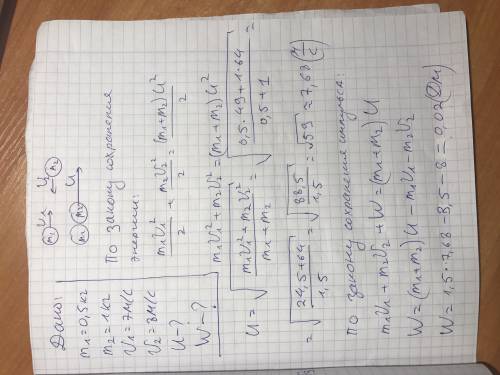 Дано:
m₁=0,5 кг
m₂=1 кг
V₁=7 м/с
V₂=8 м/с
U-?
W-?
m₁ V₁ V₂ m₂
m₁ m₂ U
По закону сохранения
энергии:
m₁V₁²/2 + m₂V₂²/2 = (m₁+m₂)U²/2
m₁V₁²+m₂V₂²=(m₁+m₂)U²
U = √((m₁V₁²+m₂V₂²)/(m₁+m₂)) = √((0,5·49+1·64)/(0,5+1)) =
= √((24,5+64)/1,5) = √(88,5/1,5) = √59 ≈ 7,68 (м/с)
По закону сохранения импульса:
m₁V₁+m₂V₂+W=(m₁+m₂)U
W=(m₁+m₂)U-m₁V₁-m₂V₂
W=1,5·7,68-3,5-8=0,02(Дж)